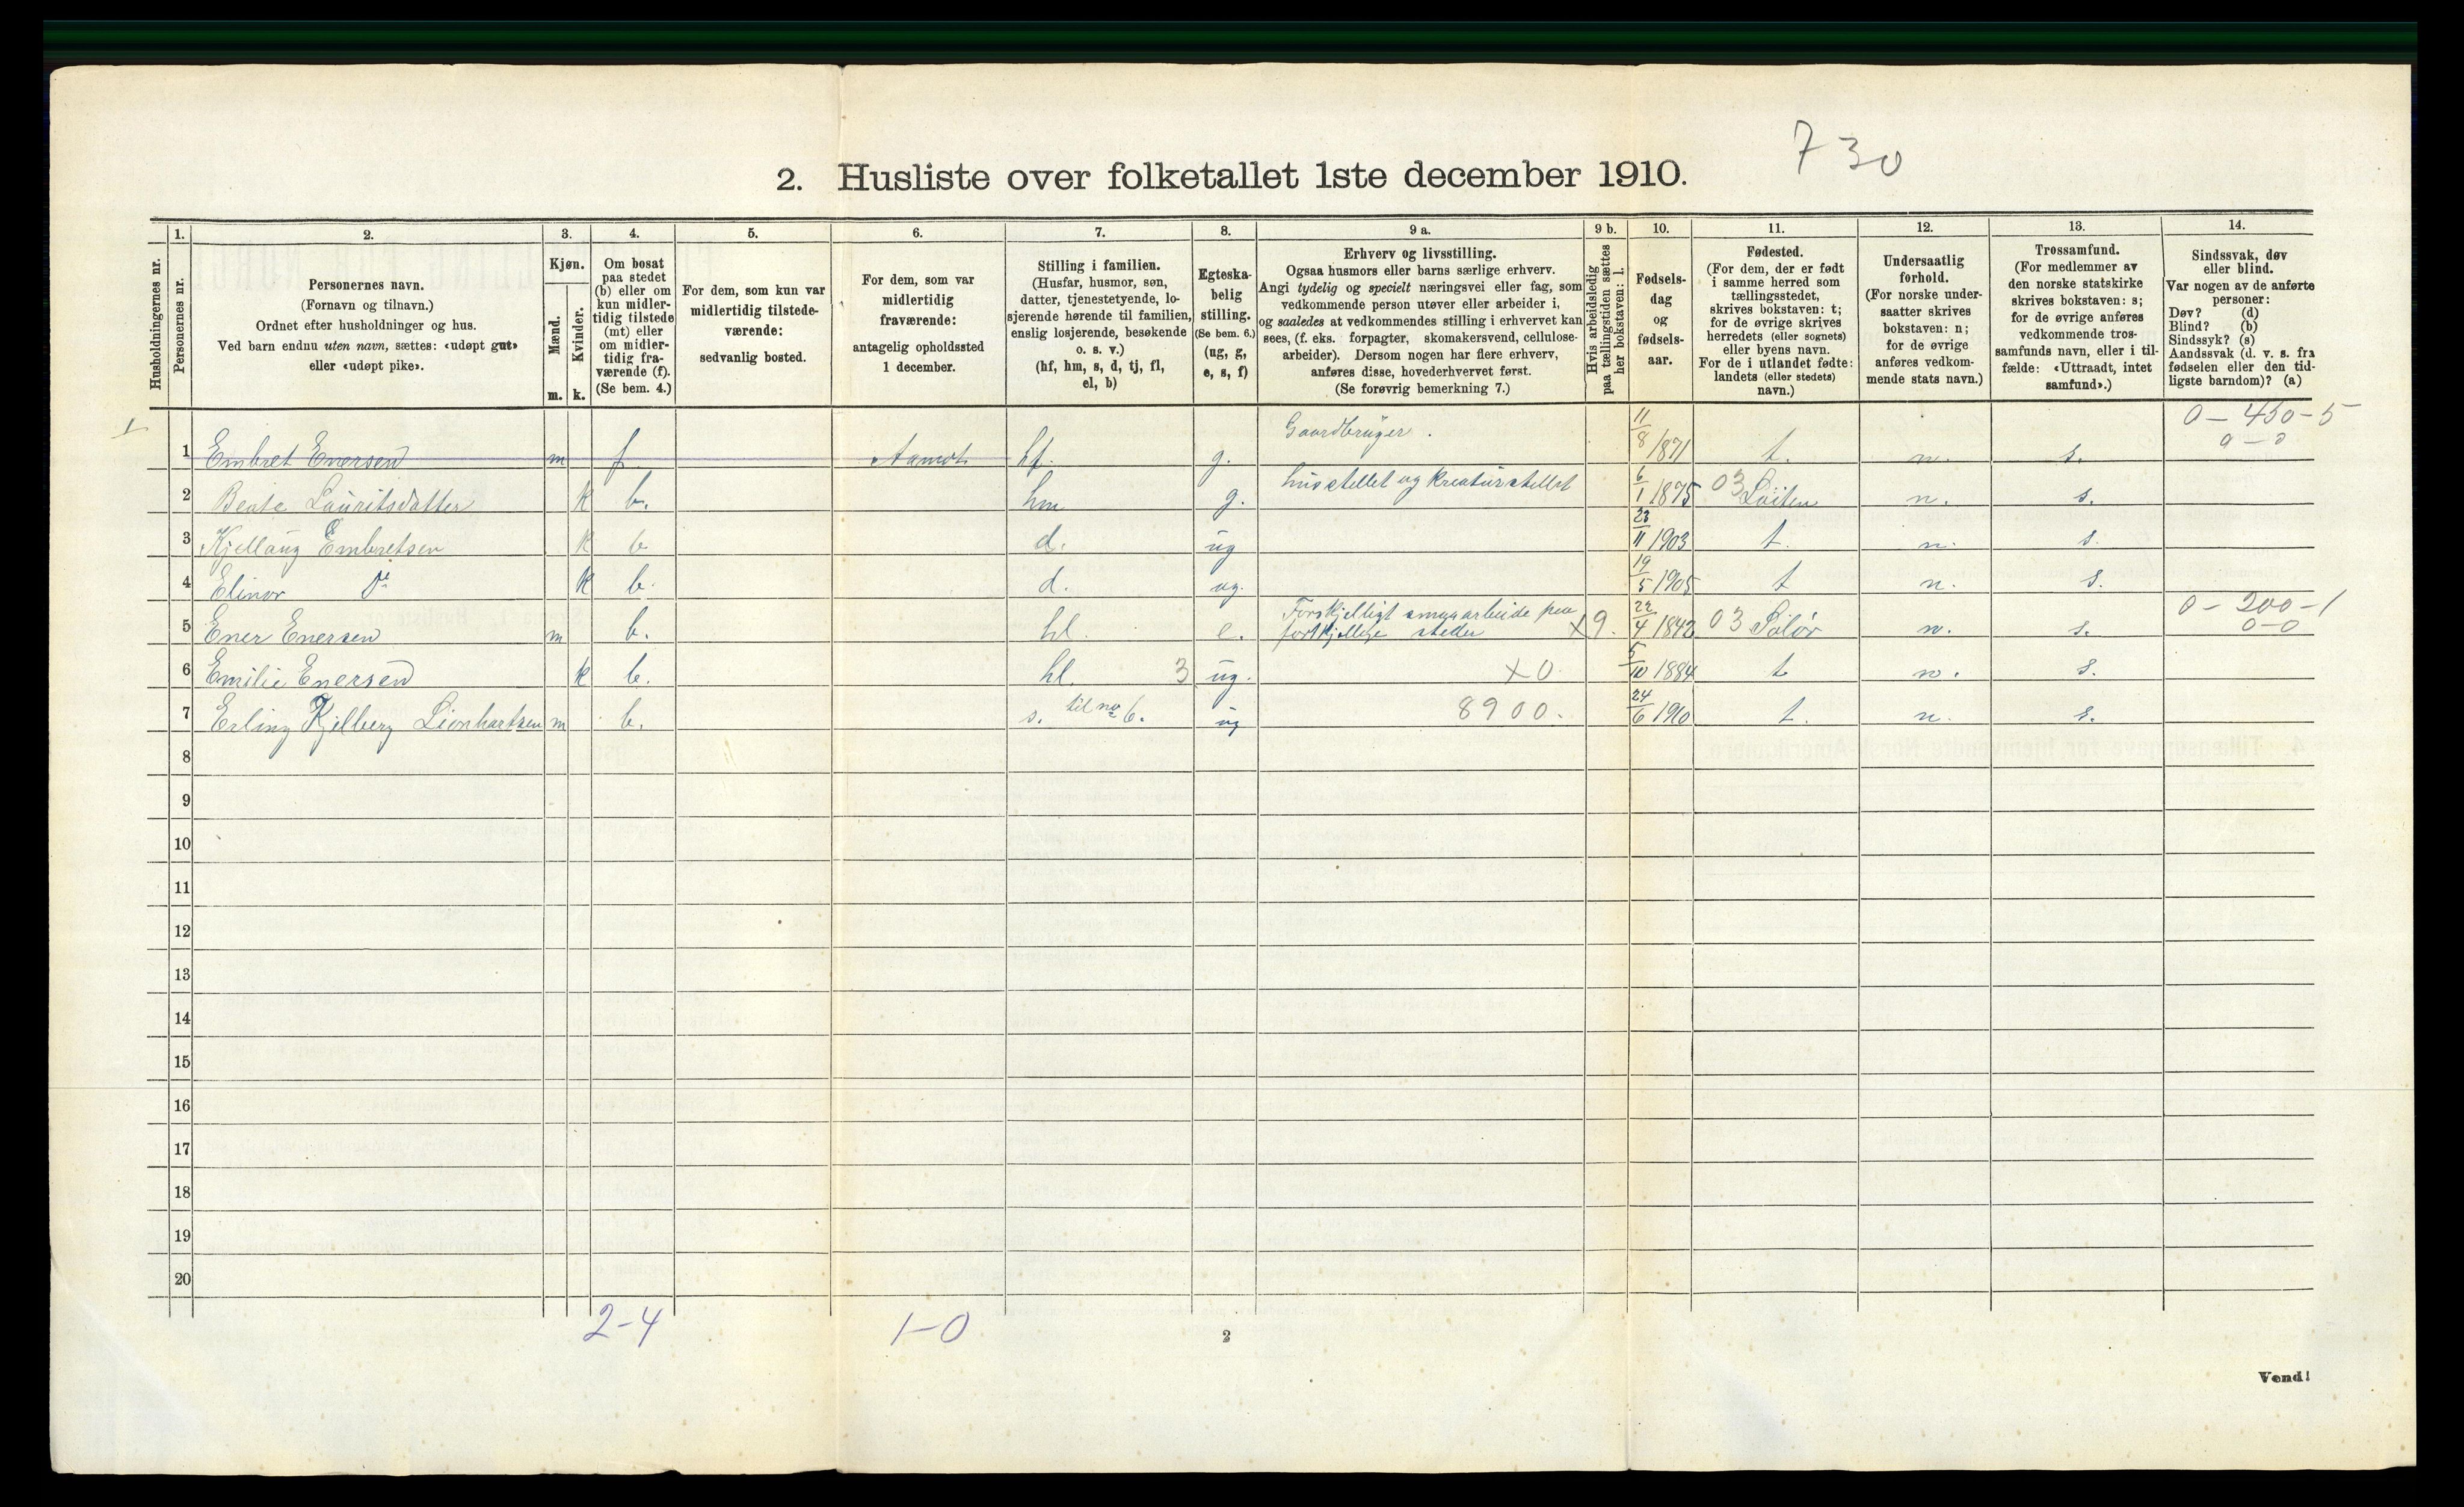 730
2. Husliste over folketallet 1ste december 1910.
1. 2. 3. 4. 5. 6. 7. 8. 9 a. 9 b. 10. 11. 12. 13. 14.
Husholdningernes nr.
Personernes nr.
Personernes navn.
(Fornavn og tilnavn.)
Ordnet efter husholdninger og hus.
Ved barn endnu uten navn, sættes: «udøpt gut»
eller «udøpt pike».
Kjøn.
Mænd.
Kvinder.
m. k.
Om bosat
paa stedet
(b) eller om
kun midler-
tidig tilstede
(mt) eller
om midler-
tidig fra-
værende (f).
(Se bem. 4.)
For dem, som kun var
midlertidig tilstede-
værende:
sedvanlig bosted.
For dem, som var
midlertidig
fraværende:
antagelig opholdssted
1 december.
Stilling i familien.
(Husfar, husmor, søn,
datter, tjenestetyende, lo-
sjerende hørende til familien,
enslig losjerende, besøkende
o. s. v.)
(hf, hm, s, d, tj, fl,
el, b)
Egteska-
belig
stilling.
(Se bem. 6.)
(ug, g,
e, s, f)
Erhverv og livsstilling.
Ogsaa husmors eller barns særlige erhverv.
Angi tydelig og specielt næringsvei eller fag, som
vedkommende person utøver eller arbeider i,
og saaledes at vedkommendes stilling i erhvervet kan
sees, (f. eks. forpagter, skomakersvend, cellulose-
arbeider). Dersom nogen har flere erhverv,
anføres disse, hovederhvervet først.
(Se forøvrig bemerkning 7.)
Hvis arbeidsledig
paa tællingstiden sættes
her bokstaven: l.
Fødsels-
dag
og
fødsels-
aar.
Fødested.
(For dem, der er født
i samme herred som
tællingsstedet,
skrives bokstaven: t;
for de øvrige skrives
herredets (eller sognets)
eller byens navn.
For de i utlandet fødte:
landets (eller stedets)
navn.)
Undersaatlig
forhold.
(For norske under-
saatter skrives
bokstaven: n;
for de øvrige
anføres vedkom-
mende stats navn.)
Trossamfund.
(For medlemmer av
den norske statskirke
skrives bokstaven: s;
for de øvrige anføres
vedkommende tros-
samfunds navn, eller i til-
fælde: «Uttraadt, intet
samfund».)
Sindssvak, døv
eller blind.
Var nogen av de anførte
personer:
Døv? (d)
Blind? (b)
Sindssyk? (s)
Aandssvak (d. v. s. fra
fødselen eller den tid-
ligste barndom)? (a)
1 Embret Enersen m f Aamot hf. g. Gaardbruger. 11/8 1871 t. n. s. 0-450-5 0-0
2 Beate Lauritsdatter k b. hm g. husstellet og kreaturstellet 6/1 1875 03 Løiten n. s.
3 Kjellaug Embretsen k b d. ug 23/11 1903 t. n. s.
4 Elinor do k b. d. ug. 19/5 1905 t n. s.
5 Ener Enersen m b. hl e. Forskjelligt smaaarbeide paa
forskjellige steder X9. 22/4 1842 03 Solør n. s. 0-200-1 0-0
6 Emilie Enersen k b. hl. 3 ug. X0 5/10 1884 t n. s.
7 Erling Kjelberg Lionhartsen m b. s. til no 6. ug 8900. 24/6 1910 t. n. s.
8
9
10
11
12
13
14
15
16
17
18
19
20
2-4 1-0
2
Vend!